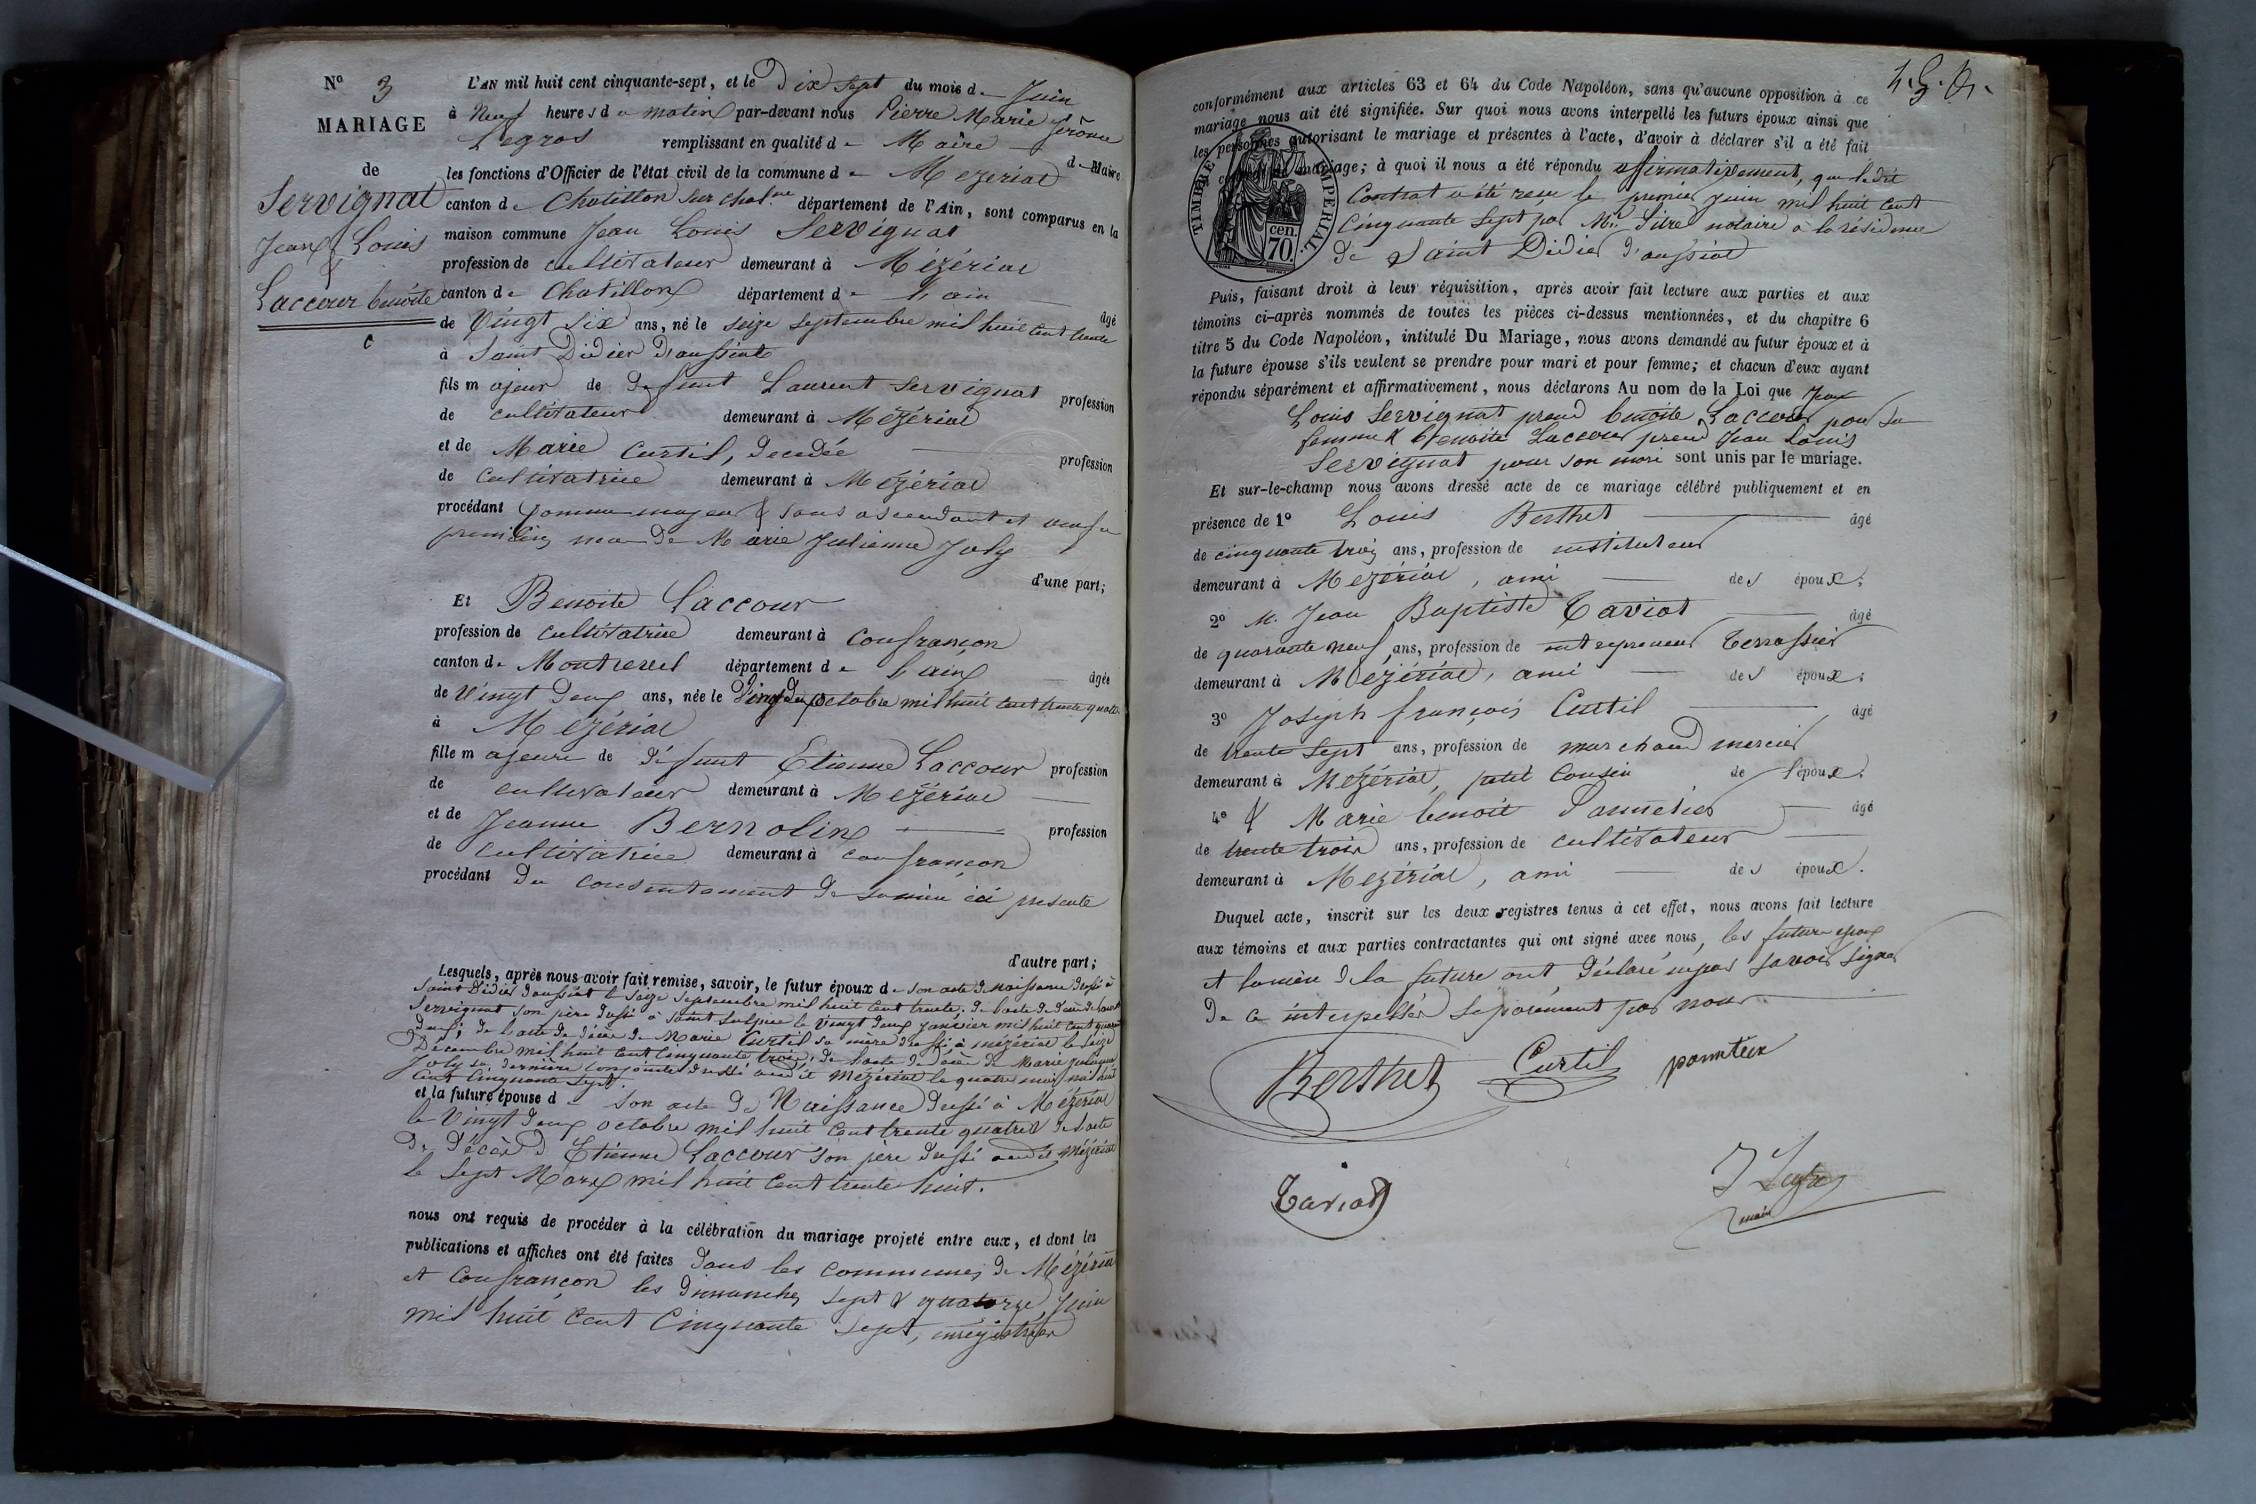 No 3
MARIAGE
de
Servignat
Jean Louis
&
Laccour benoite
L'AN mil huit cent cinquante-sept, et le Dix sept du mois de Juin
à Neuf heures du matin par-devant nous Pierre Marie Jérôme
Legros remplissant en qualité de Maire d
les fonctions d'Officier de l'état civil de la commune de Mezeriat
canton de Chatillon sur Chal.ne département de l'Ain, sont comparus en la
maison commune Jean Louis Servignat
profession de cultivateur demeurant à Mézériat
canton de Chatillon département de l'ain âgé
de Vingt six ans, né le seize septembre mil huit cent trente
à Saint Didier d'aussiat
fils majeur de defunt Laurent Servignat profession
de cultivateur demeurant à Mézériat
et de Marie Curtil, décédée profession
de Cultivatrice demeurant à Mézériat
procédant comme majeur & sans ascendant et veuf en
premières de Marie Julienne Joly
d'une part;
Et Benoite Laccour
profession de cultivatrice demeurant à Confrançon
canton de Montrevel département de l'ain âgée
de Vingt deux ans, née le Vingt deux octobre mil huit cent trente quatre
à Mézériat
fille majeure de défunt Etienne Laccour profession
de cultivateur demeurant à Mézériat
et de Jeanne Bernolin profession
de cultivatrice demeurant à confrançon
procédant du consentement de sa mère ici presente
d'autre part;
Lesquels, après nous avoir fait remise, savoir, le futur époux de son acte de Naissance dressé à
Saint Didier d'aussiat le seize septembre mil huit cent trente. de l'acte de décès de Laurent
Servignat son père dressé à saint Sulpice le vingt deux janvier mil huit cent quarante
deux; de l'acte de décès de Marie Curtil sa mère dressé à mézériat le seize
Décembre mil huit cent cinquante trois; de l'acte de décès de Marie julienne
Joly sa dernière conjointe dressé audit Mézériat le quatre mars mil huit
cent cinquante sept.
et la future épouse de son acte de Naissance dressé à Mézériat
le Vingt deux octobre mil huit cent trente quatre & de l'acte
de décès d'Etienne Laccour son père dressé audit Mézériat
le sept Mars mil huit cent trente huit.
nous ont requis de procéder à la célébration du mariage projeté entre eux, et dont les
publications et affiches ont été faites dans les communes de Mézériat
et Confrançon les dimanches sept & quatorze Juin
mil huit cent cinquante sept, enregistrées
conformément aux articles 63 et 64 du Code Napoléon, sans qu'aucune opposition à ce
mariage nous ait été signifiée. Sur quoi nous avons interpellé les futurs époux ainsi que
les personnes autorisant le mariage et présentes à l'acte, d'avoir à déclarer s'il a été fait
contrat de mariage; à quoi il nous a été répondu affirmativement, que le dit
Contrat a été reçu le premier juin mil huit cent
Cinquante sept par Me notaire à la résidence
de Saint Didier d'aussiat
TIMBRE IMPERIAL
70 cen.
Puis, faisant droit à leur réquisition, après avoir fait lecture aux parties et aux
témoins ci-après nommés de toutes les pièces ci-dessus mentionnées, et du chapitre 6
titre 5 du Code Napoléon, intitulé Du Mariage, nous avons demandé au futur époux et à
la future épouse s'ils veulent se prendre pour mari et pour femme; et chacun d'eux ayant
répondu séparément et affirmativement, nous déclarons Au nom de la Loi que Jean
Louis Servignat prend benoite Laccour pour sa
femme & benoite Laccour prend Jean Louis
Servignat pour son mari sont unis par le mariage.
Et sur-le-champ nous avons dressé acte de ce mariage célébré publiquement et en
présence de 1o Louis Berthet âgé
de cinquante trois ans, profession de instituteur
demeurant à Mezériat, ami des époux;
2o M. Jean Baptiste Taviot âgé
de quarante neuf ans, profession de entrepreneur Terrassier
demeurant à Mézériat, ami des époux;
3o Joseph françois Curtil âgé
de trente sept ans, profession de marchand mercier
demeurant à Mézériat, petit Cousin de l'époux;
4o & Marie benoit âgé
de trente trois ans, profession de cultivateur
demeurant à Mezériat, ami des époux.
Duquel acte, inscrit sur les deux registres tenus à cet effet, nous avons fait lecture
aux témoins et aux parties contractantes qui ont signé avec nous, les futurs époux
et la mère de la future ont déclaré ne pas savoir signer
de ce interpellés séparément par nous
Berthet Curtil
Taviot
maire